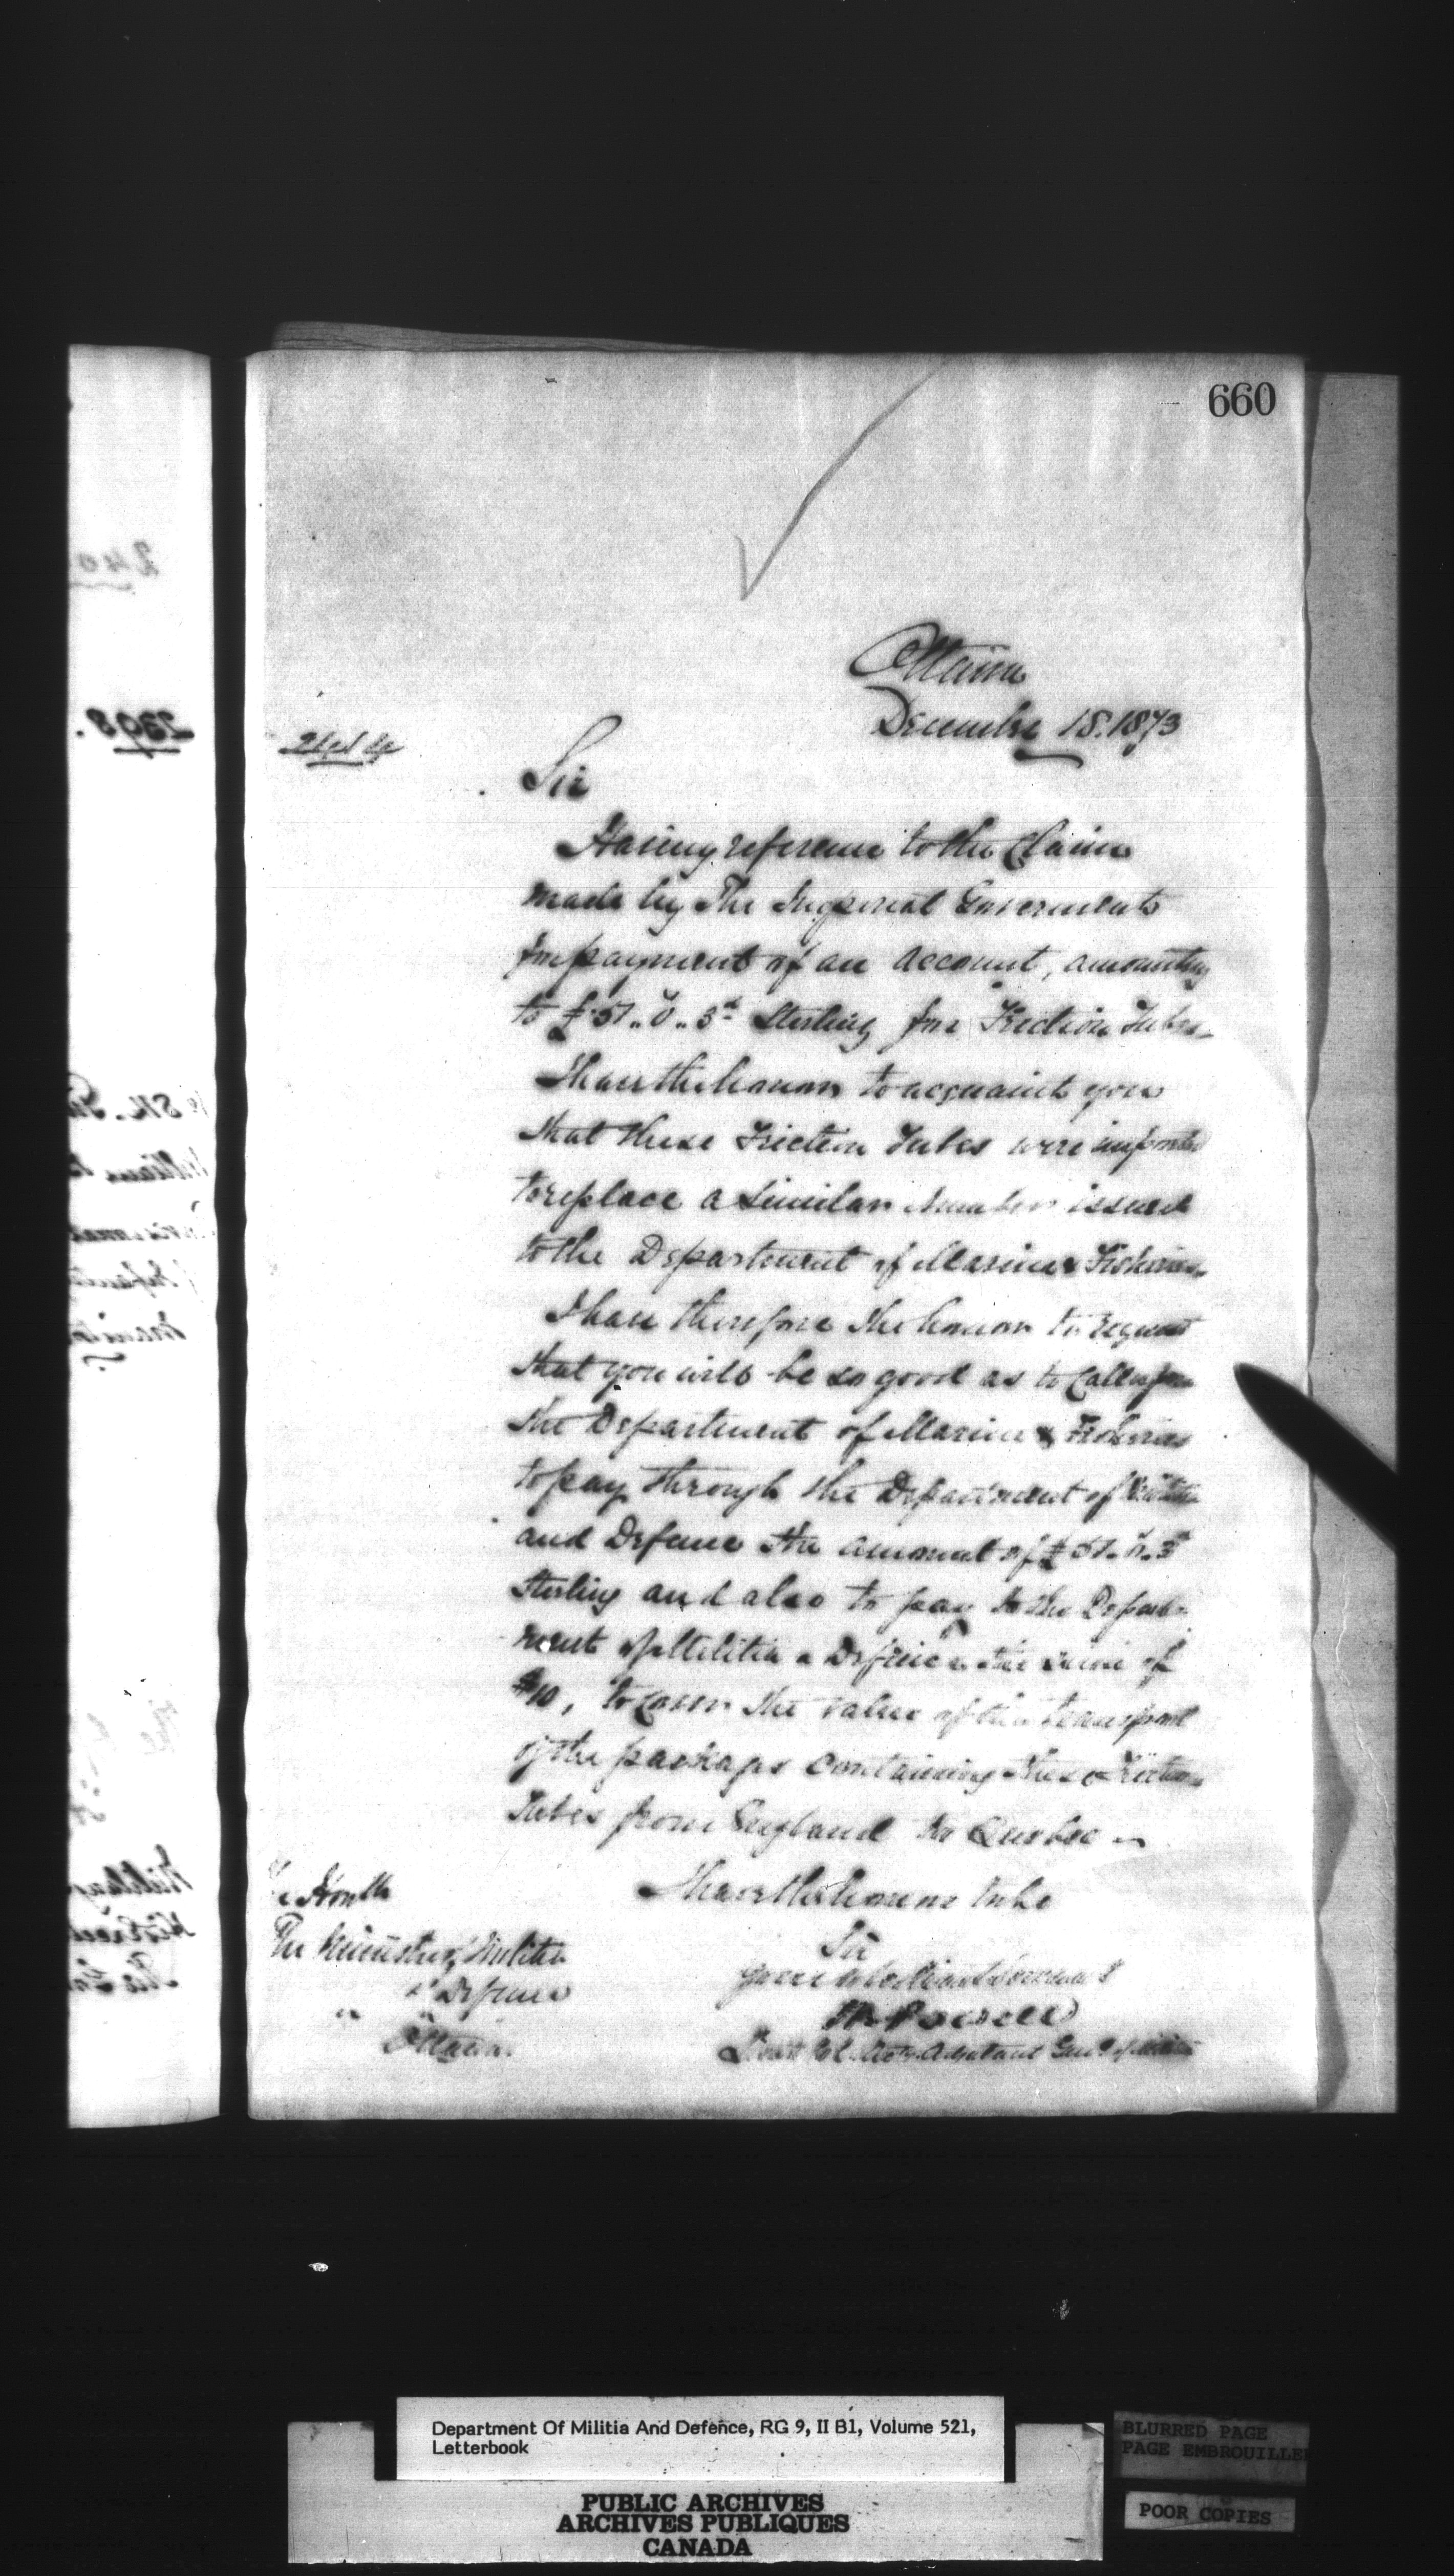 660
Ottawa
December 18. 1873
Sir
Having reference to the Claim
made by The Imperial Government
for payment of an account, amounting
to £ 51.. 0.. 3d Sterling for Friction Tubes
I have the honour to acquaint you
that these Friction Tubes were imported
to replace a similar number issued
to the Department of Marine & Fisheries
I have therefore the honour to request
that you will be so good as to Call upon
the Department of Marine & Fisheries
to pay through the Department of Militia
and Defence the amount of £ 51. 0. 3d
Sterling and also to pay to the Depart-
ment of Militia & Defence the sum of
$10, to cover the value of the transport
of the packages containing these Friction
Tubes from England to Quebec
I have the honour to be
Sir
your obedient servant
W Powell
Lieut Col. Actg Adjutant Genl of Militia
Honble
The Minister of Militia
& Defence
Ottawa
2308.
Department Of Militia And Defence, RG 9, II B1, Volume 521,
Letterbook
PUBLIC ARCHIVES
ARCHIVES PUBLIQUES
CANADA
BLURRED PAGE
PAGE EMBROUILLE
POOR COPIES